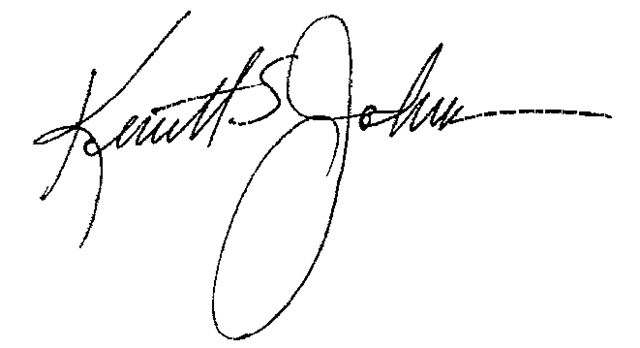 Kenneth S. John